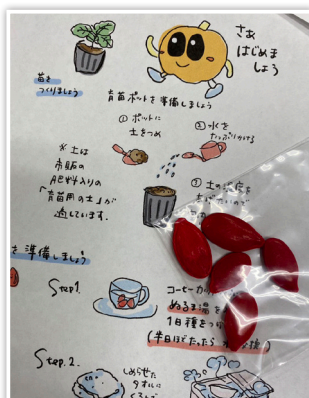 さあ
はじめま
しょう
苗を
つくりましょう
育苗ポットを準備しましょう
① ポットに
土をつめ
② 水を
たっぷりかける
※ 土は
市販の
肥料入りの
「育苗用の土」が
適しています.
③ 土の
を準備しましょう
Step1.
コーヒーカップ
ぬるま湯を
1日種をつ
(半日ほどたったら
Step.2.
しめらせた
タオルに
くるんで